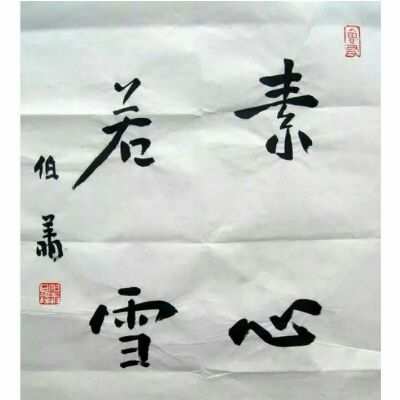 素心
若雪
伯萧